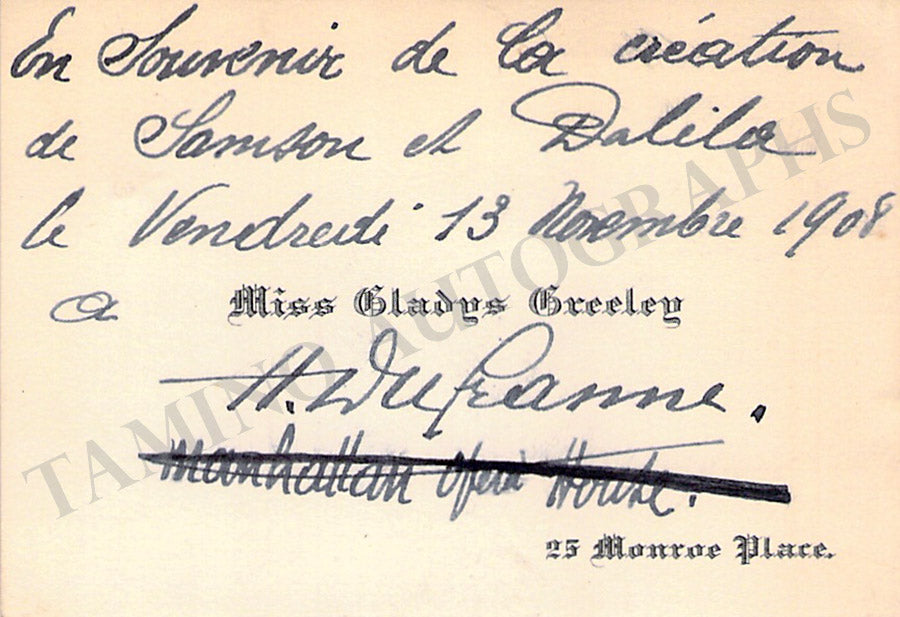 En Souvenir de la création
de Samson et Dalila
le Vendredi 13 Novembre 1908
a Miss Gladys Greeley
H. Dufranne.
Manhattan Opera House.
25 Monroe Place.
TAMINO AUTOGRAPHS